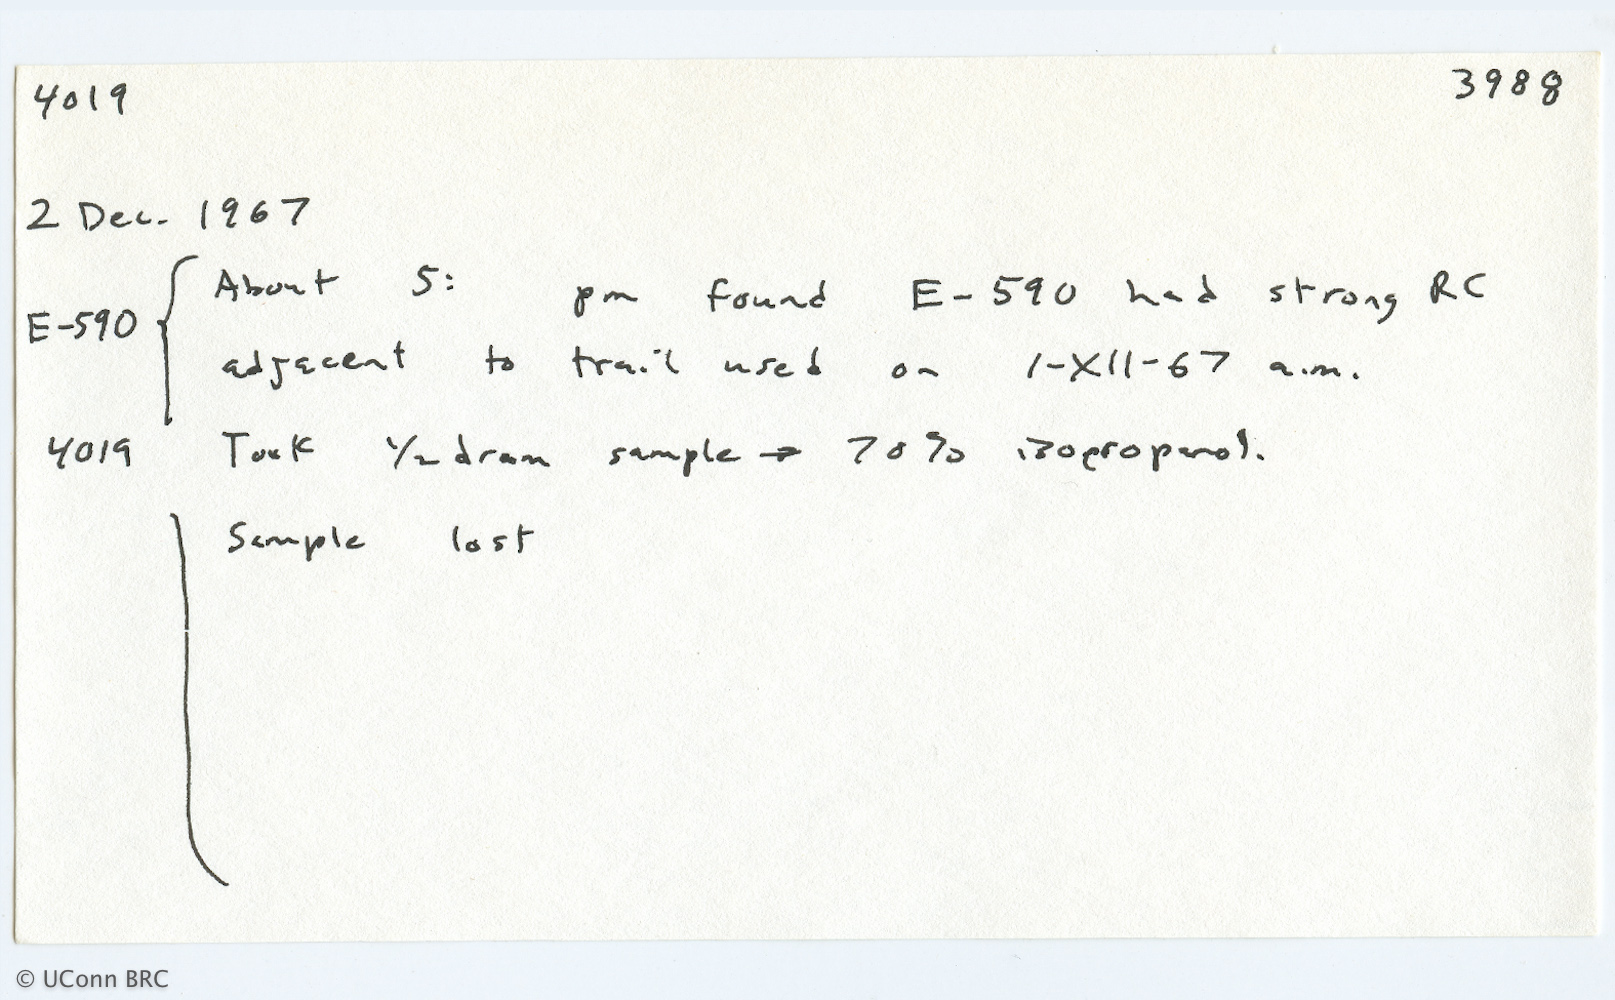 4019 3988
2 Dec. 1967
About 5: pm found E-590 had strong RC
E-590
adjacent to trail used on 1-XII-67 a.m.
4019 Took 1/2 dram sample → 70% isopropanol.
Sample lost
© UConn BRC